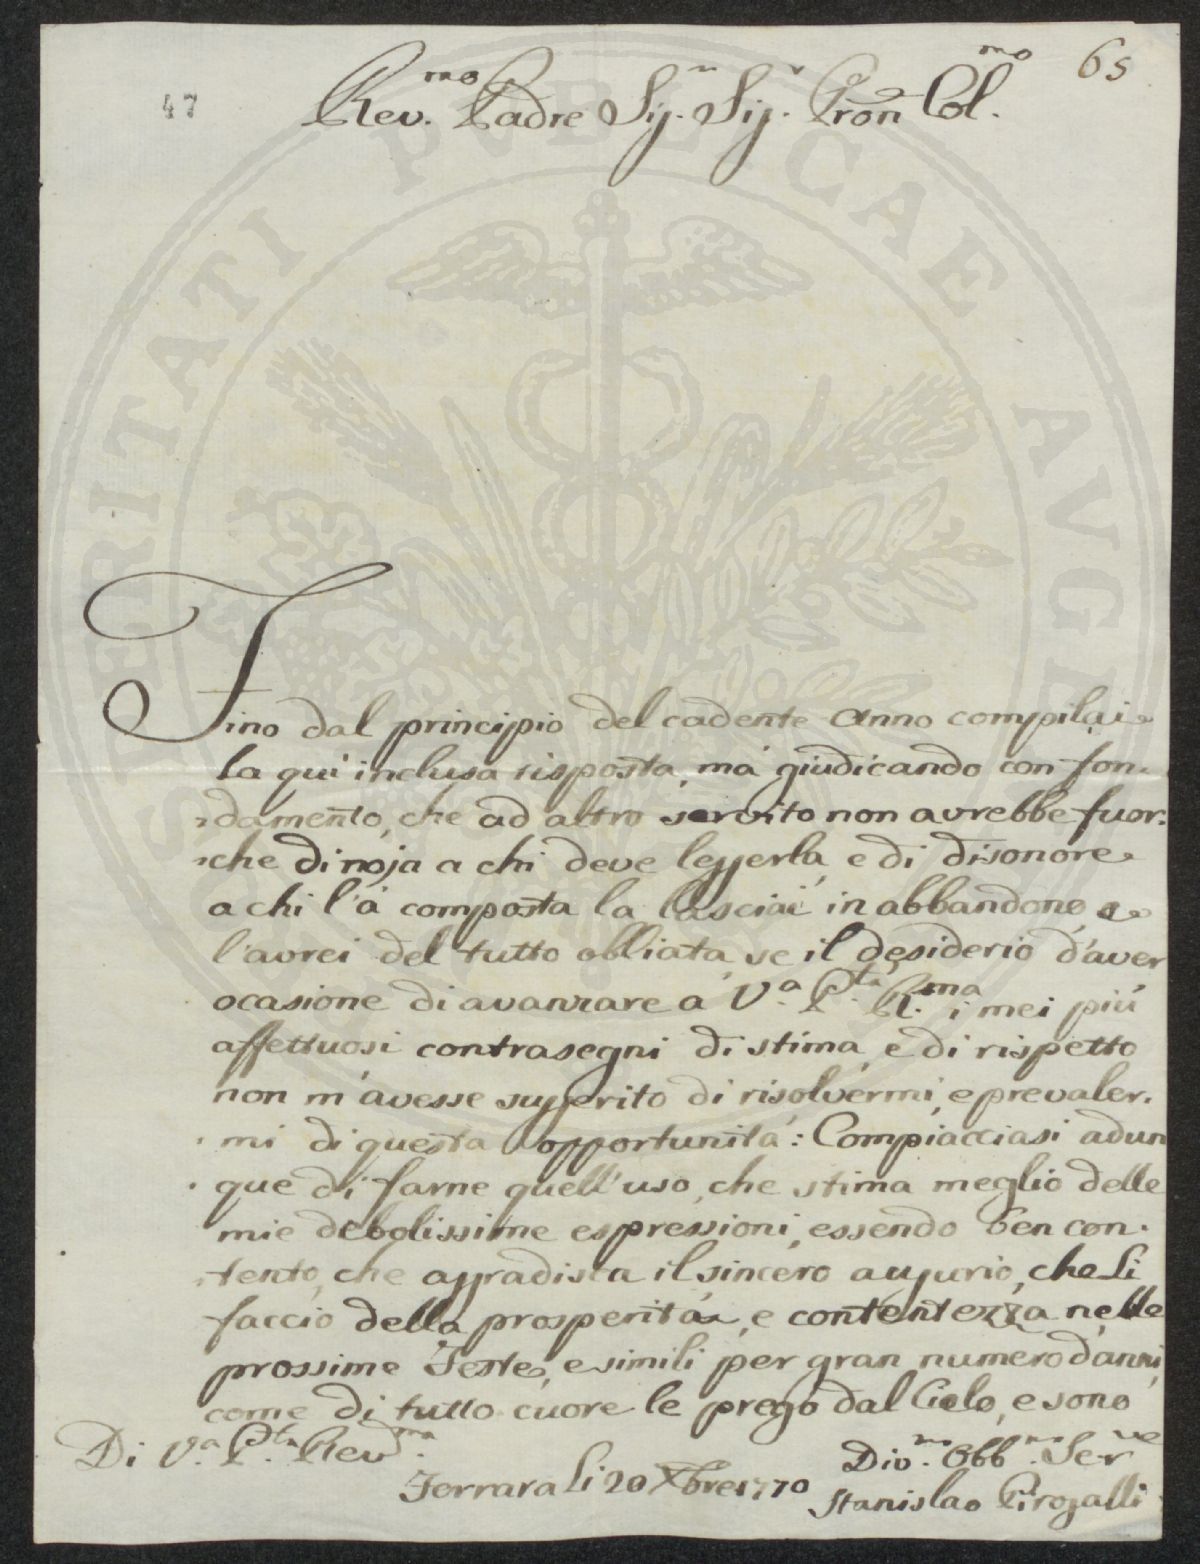 47
65
Rev.mo Padre Sig.r Sig.r Pron Col.mo
Fino dal principio del cadente Anno compilai
la qui inclusa risposta, mà giudicando con fon.
damento, che ad altro servito non avrebbe fuor:
che di noja a chi deve leggerla, e di disonore
a chi l'à composta la lasciai in abbandono, e
l'avrei del tutto obliata, se il desiderio d'aver
ocasione di avanzare a V.a P.tà R.ma i miei più
affettuosi contrasegni di stima, e di rispetto
non m'avesse suggerito di risolvermi, e prevaler.
mi di questa opportunità: Compiacciasi adun
que di farne quell'uso, che stima meglio delle
mie debolissime espressioni, essendo ben con.
tento, che aggradisca il sincero augurio, che Li
faccio della prosperità, e contentezza nelle
prossime Feste, e simili per gran numero d'anni,
come di tutto cuore le prego dal Cielo, e sono
Di V.a P.tà Rev.ma
Div.mo Obb.mo Ser.ve
Ferrara Li 20 Xbre 1770
Stanislao Pirogalli
PUBLICAE